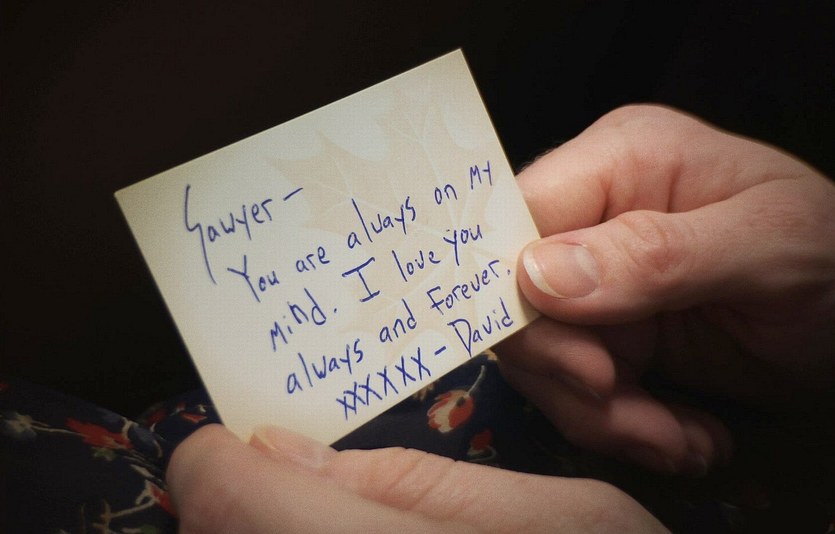 Sawyer –
You are always on My
Mind. I love you
always and Forever.
xXXXXX – David